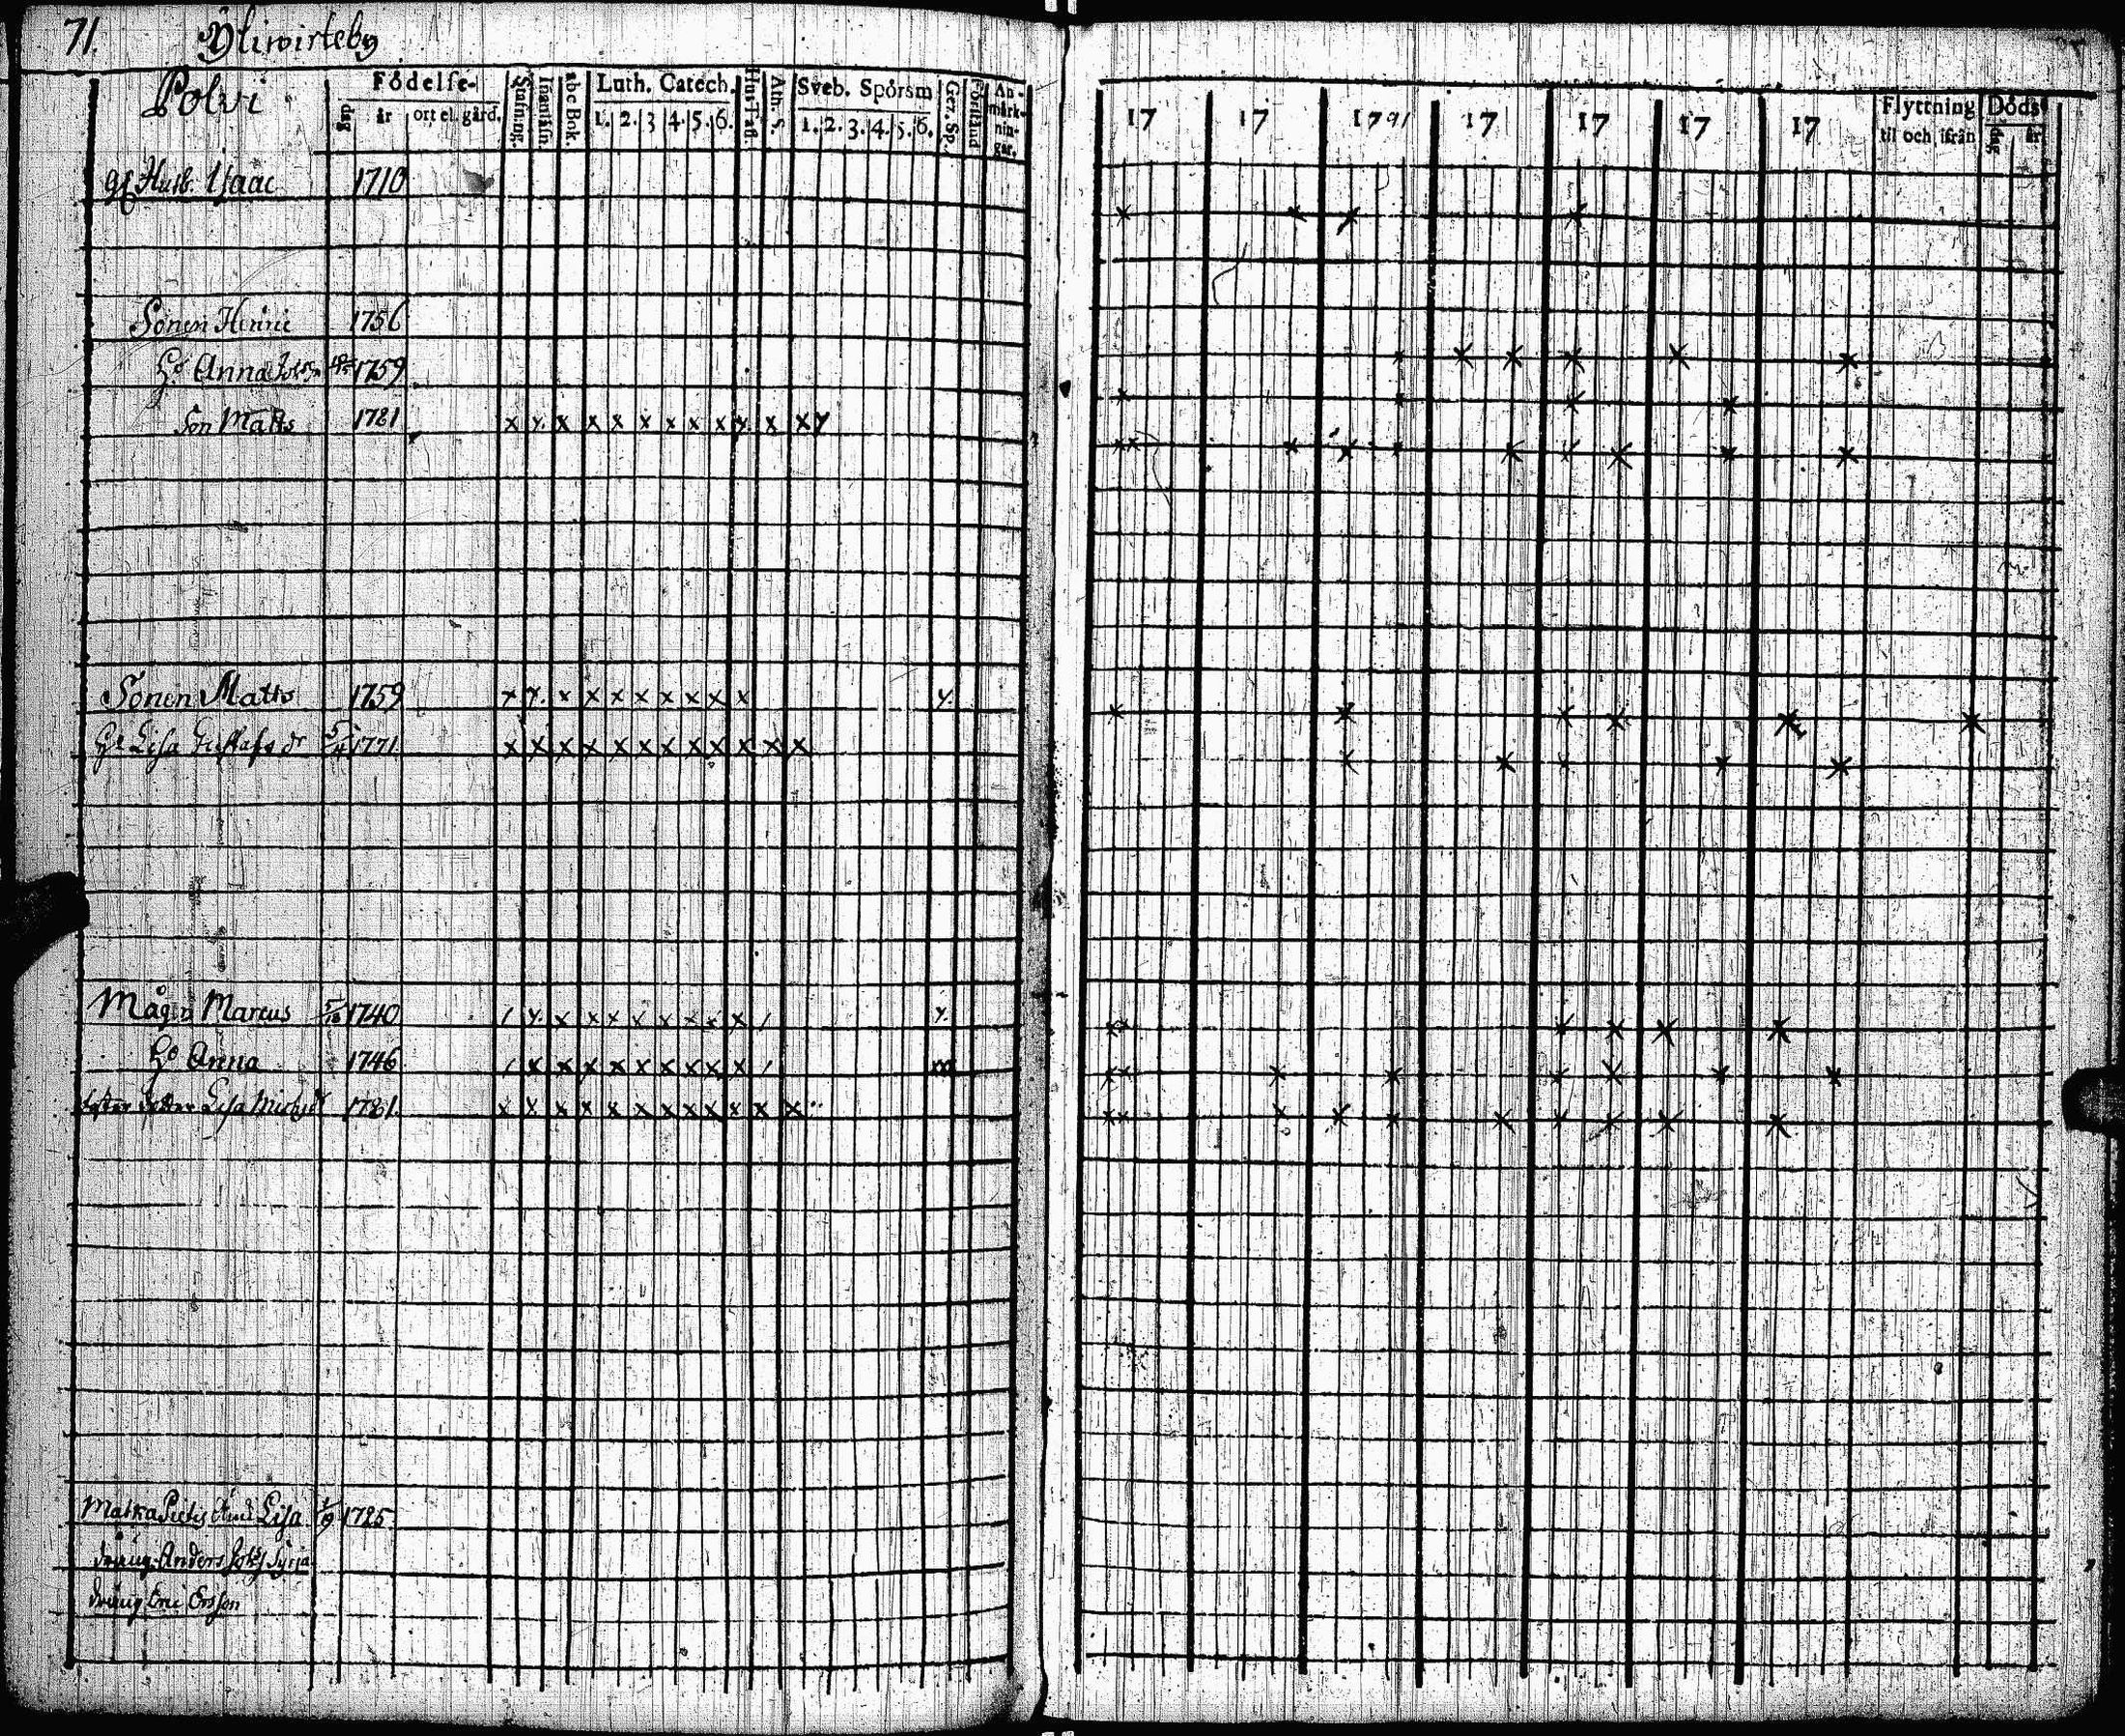 71. Yliwirteby
Polvi
Födelse-
dag år ort el. gård.
Stafning.
Innanläsn.
abc Bok.
Luth. Catech.
1. 2. 3 4. 5. 6.
Hus Tafl.
Ath. S.
Sveb. Spörsm
1. 2. 3. 4. 5. 6.
Ger. Sp.
Förstånd
An-
märk-
nin-
gar.
17 17 1791 17 17 17 17
Flyttning
til och ifrån
Döds
dag år
gf Husb. Isaac 1710
Sonen Henric 1756
Ho Anna 1759
Son Matts 1781 x x x x x x x x x x x x y
Sonen Matts 1759 x x x x x x x x x x y.
Hu Lisa Gustafs dr 5/4 1771 x x x x x x x x x x x x
Mågen Marcus 5/10 1740 / y. x x x x x x x x / y.
Ho Anna 1746 / x x x x x x x x x /
dotter Lisa Michelsdr 1781 x x x x x x x x x x x x
Lisa 1/9 1725
dräng Anders
dräng Eric Ersson